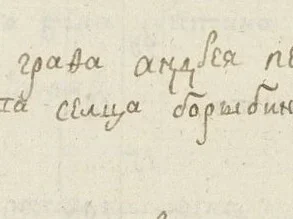 графа андрея пе
та селца борыбин